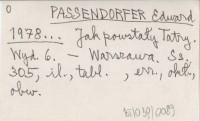 0
PASSENDORFER Edward
1978... Jak powstały Tatry.
Wyd. 6. — Warszawa. Ss.
305, il., tabl. , err., okł.,
obw.